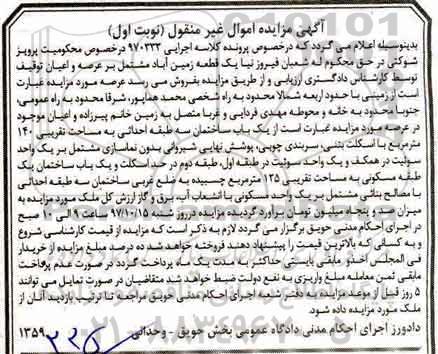 آگهی مزایده اموال غیر منقول (نوبت اول)
بدینوسیله اعلام می گردد که درخصوص پرونده کلاسه اجرایی ۹۷۰۳۳۳ درخصوص محکومیت پرویز
شوکتی در حق محکوم له شعبان فیروز نیا یک قطعه زمین آباد مشتمل بر عرصه و اعیان توقیف
توسط کارشناس دادگستری ارزیابی و از طریق مزایده بفروش می رسد عرصه مورد مزایده عبارت
است از زمینی با حدود اربعه شمالا محدود به راه شخصی محمد هماپور، شرقا محدود به راه عمومی،
جنوبا محدود به خانه و محوطه مهدی فردایی و غربا متصل به زمین خانم پیرزاده و اعیان موجود
در عرصه مورد مزایده عبارت است از یک باب ساختمان سه طبقه احداثی به مساحت تقریبی ۱۴۰
مترمربع با اسکلت بتنی، سربندی چوبی، پوشش نهایی شیروانی بدون نماسازی مشتمل بر یک واحد
سوئیت در همکف و یک واحد سوئیت در طبقه اول، طبقه دوم در حد اسکلت و یک باب ساختمان یک
طبقه مسکونی به مساحت تقریبی ۱۲۵ مترمربع چسبیده به ضلع غربی ساختمان سه طبقه احداثی
با مصالح بنائی مشتمل بر یک واحد مسکونی با انشعاب آب، برق و گاز ارزش کل ملک مورد مزایده به
میزان صد و پنجاه میلیون تومان برآورد گردیده مزایده درروز شنبه ۹۷/۱۰/۱۵ ساعت ۹ الی ۱۱ صبح
در اجرای احکام مدنی حویق برگزار می گردد لازم به ذکر است که مزایده از قیمت کارشناسی شروع
و به کسانی که بالاترین قیمت را پیشنهاد دهند فروخته خواهد شد ده درصد مبلغ مزایده از خریدار
فی المجلس اخذو مابقی بایستی حداکثر به مدت یک ماه پرداخت گردد در صورت عدم پرداخت
مابقی ثمن معامله مبلغ واریزی به نفع دولت ضبط خواهد شد متقاضیان در صورت تمایل می توانند
۵ روز قبل از موعد مزایده به دفتر شعبه اجرای احکام مدنی حویق مراجعه تا ترتیب بازدید آنان از
ملک مورد مزایده داده شود.
دادورز اجرای احکام مدنی دادگاه عمومی بخش حویق - وحدانی ۱۳۵۹